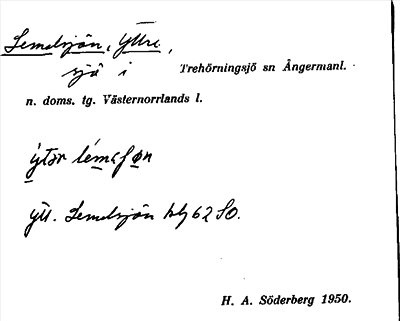 Lemelsjön, Yttre,
sjö i Trehörningsjö sn Ångermanl.
n. doms. tg. Västernorrlands l.
ytt. Lemelsjön kbl 62 SO.
H. A. Söderberg 1950.